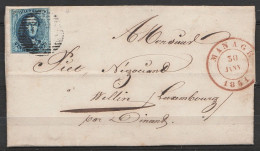 Monsieur
Pico Négociant
Wellin Luxembourg
par Dinant
MANAGE
30
JANV
1851